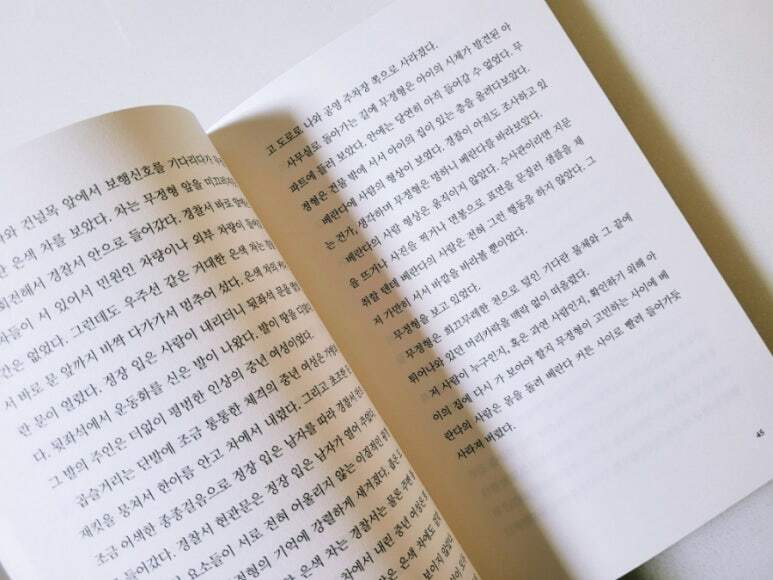 와 건널목 앞에서 보행신호를 기다리다가
은색 차를 보았다. 차는 무정형 앞을 미끄러지
회전해서 경찰서 안으로 들어갔다. 경찰서 바로
자들이 서 있어서 민원인 차량이나 외부 차량이
간은 없었다. 그런데도 우주선 같은 거대한 은색 차는
서 바로 문 앞까지 바짝 다가가서 멈추어 섰다. 은색 차의
란 문이 열렸다. 정장 입은 사람이 내리더니 뒷좌석 문을
다. 뒷좌석에서 운동화를 신은 발이 나왔다. 발이 땅을
그 발의 주인은 더없이 평범한 인상의 중년 여성이었다.
곱슬거리는 단발에 조금 통통한 체격의 중년 여성은
재킷을 뭉쳐서 한아름 안고 차에서 내렸다. 그리고
조금 어색한 종종걸음으로 정장 입은 남자를 따라 경찰서
들어갔다. 경찰서 현관문은 정장 입은 남자가 열어 주었다.
요소들이 서로 전혀 어울리지 않는 이질적인
무정형의 기억에 강렬하게 새겨졌다.
은색 차는 경찰서는 물론 주변
차에서 내린 중년 여성은
은색 차에도
보이지 않았다.
고 도로로 나와 공영 주차장 쪽으로 사라졌다.
사무실로 돌아가는 길에 무정형은 아이의 시체가 발견된 아
파트에 들러 보았다. 안에는 당연히 아직 들어갈 수 없었다. 무
정형은 건물 밖에 서서 아이의 집이 있는 층을 올려다보았다.
베란다에 사람의 형상이 보였다. 경찰이 아직도 조사하고 있
는 건가, 생각하며 무정형은 멍하니 베란다를 바라보았다.
베란다의 사람 형상은 움직이지 않았다. 수사관이라면 지문
을 뜨거나 사진을 찍거나 면봉으로 표면을 문질러 샘플을 채
취할 텐데 베란다의 사람은 전혀 그런 행동을 하지 않았다. 그
저 가만히 서서 바깥을 바라볼 뿐이었다.
무정형을 보고 있었다.
무정형은 희끄무레한 천으로 덮인 기다란 물체와 그 끝에
튀어나와 있던 머리카락을 맥락 없이 떠올렸다.
저 사람이 누구인지, 혹은 과연 사람인지, 확인하기 위해 아
이의 집에 다시 가 보아야 할지 무정형이 고민하는 사이에 베
란다의 사람은 몸을 돌려 베란다 커튼 사이로 빨려 들어가듯
사라져 버렸다.
45